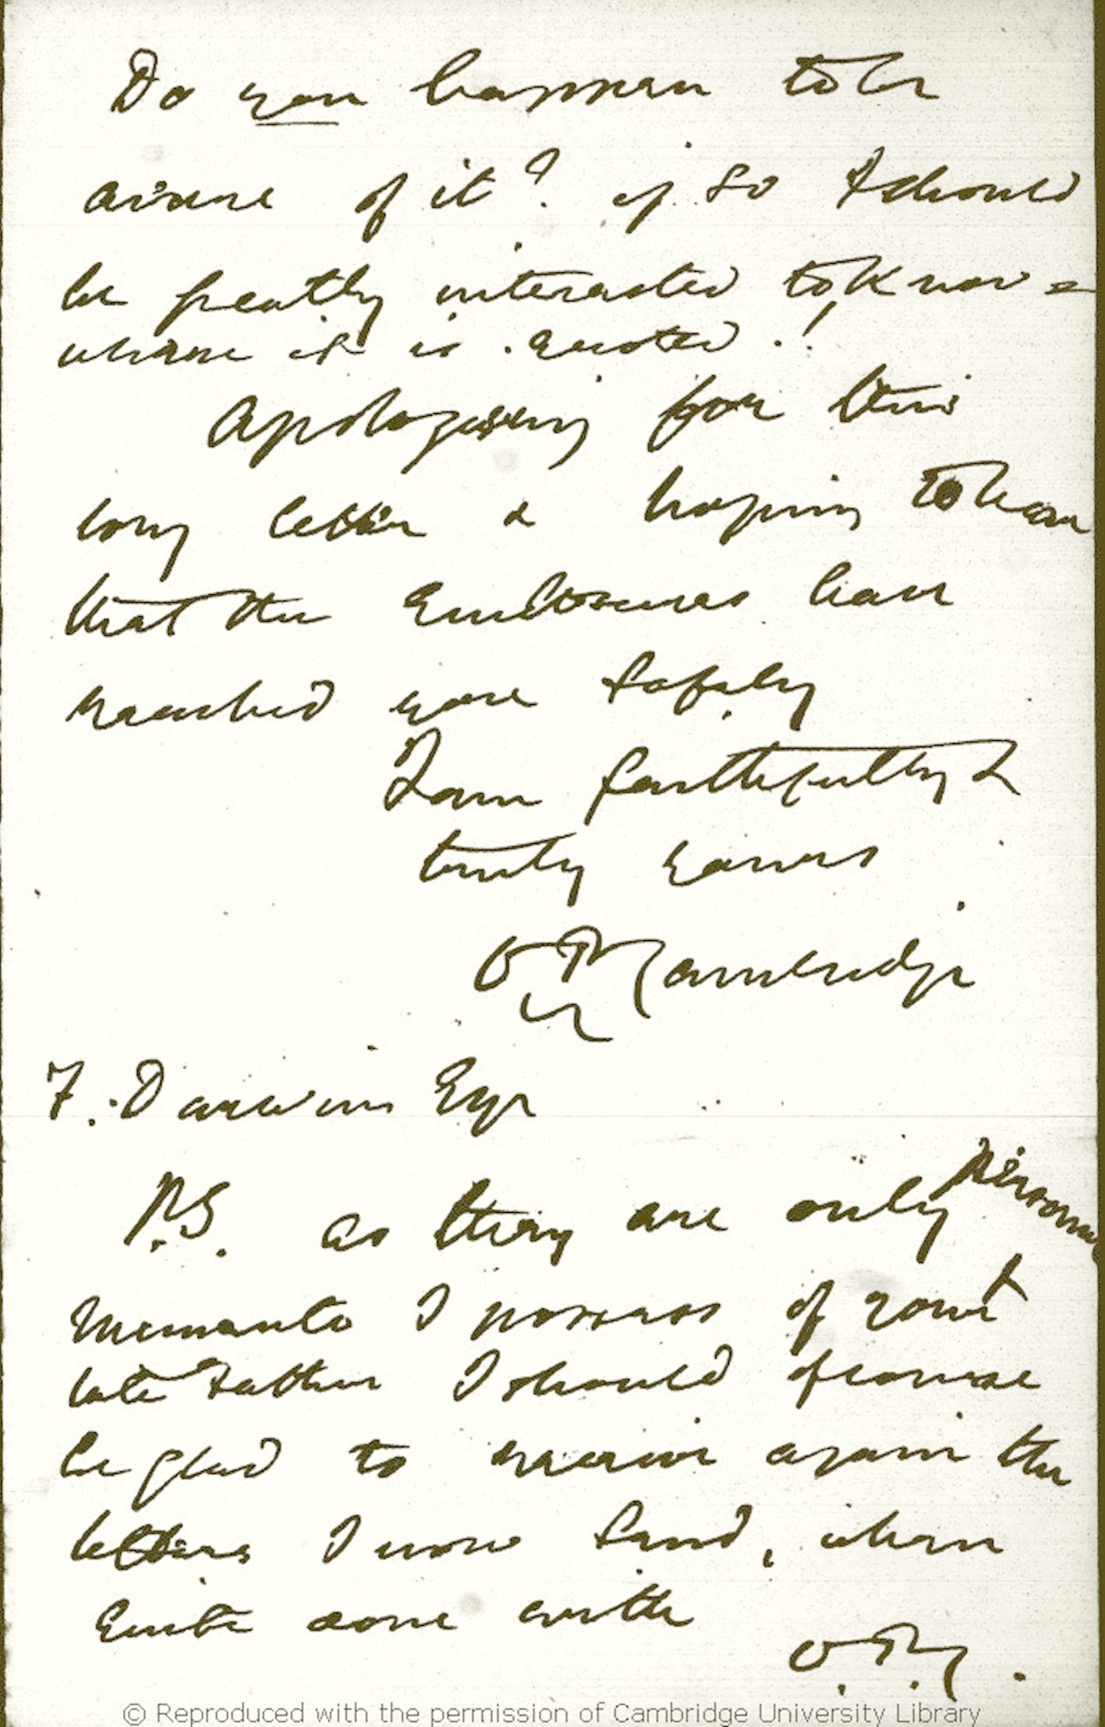 Do you happen to be
aware of it? if so I should
be greatly interested to know =
where it is quoted.!
Apologising for this
long letter & hoping to hear
that the Enclosures have
reached you safely
I am faithfully &
truly yours
O P Cambridge
F. Darwin Esqr
P.S. as they are only personal
memento I possess of your
late Father I should of course
be glad to receive again the
letters I now send, when
quite done with
O.P.C.
© Reproduced with the permission of Cambridge University Library